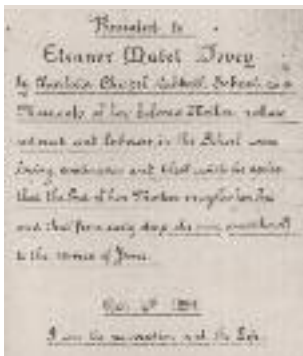 Presented to
Eleanor Mabel Tovey
by Chapel Sabbath School as a
Memento of her beloved Mother whose
interest and labours in the School were
loving and with the desire
that the God of her Mother may be her
and that from early days she may
to the service of Jesus.
1894
I am the resurrection and the Life